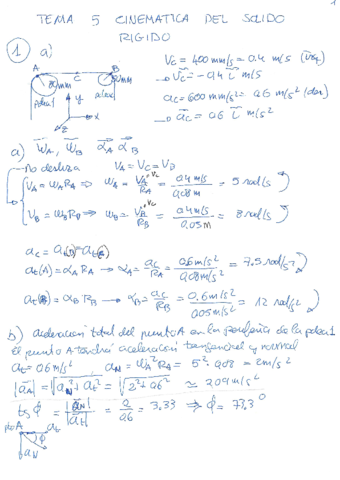 1
TEMA 5 CINEMATICA DEL SOLIDO
RIGIDO
1 a)
Vc = 400 mm/s = 0.4 m/s (izq)
→ Vc = -0.4 i m/s
ac = 600 mm/s² = 0.6 m/s² (der)
→ ac = 0.6 i m/s²
A C B
80mm
50mm
polea 1
y
x
z
WA, WB αA αB
a) No desliza VA = VC = VB
VA = WA RA ⇒ WA = VA/RA = 0.4 m/s / 0.08m = 5 rad/s
VB = WB RB ⇒ WB = VB/RB = 0.4 m/s / 0.05m = 8 rad/s
at(A) = αA RA → αA = ac/RA = 0.6 m/s² / 0.08 m/s² = 7.5 rad/s²
at(B) = αB RB → αB = ac/RB = 0.6 m/s² / 0.05 m/s² = 12 rad/s²
b) aceleracion total del punto A en la periferia de la polea 1
El punto A tendrá aceleracion tangencial y normal
at = 0.6 m/s² aN = WA² RA = 5² · 0.08 = 2 m/s²
|aA| = √aN² + at² = √2² + 0.6² ≃ 2.09 m/s²
tg φ = |aN|/|at| = 2/0.6 = 3.33 ⇒ φ = 73,3°
pto A at
φ
aN